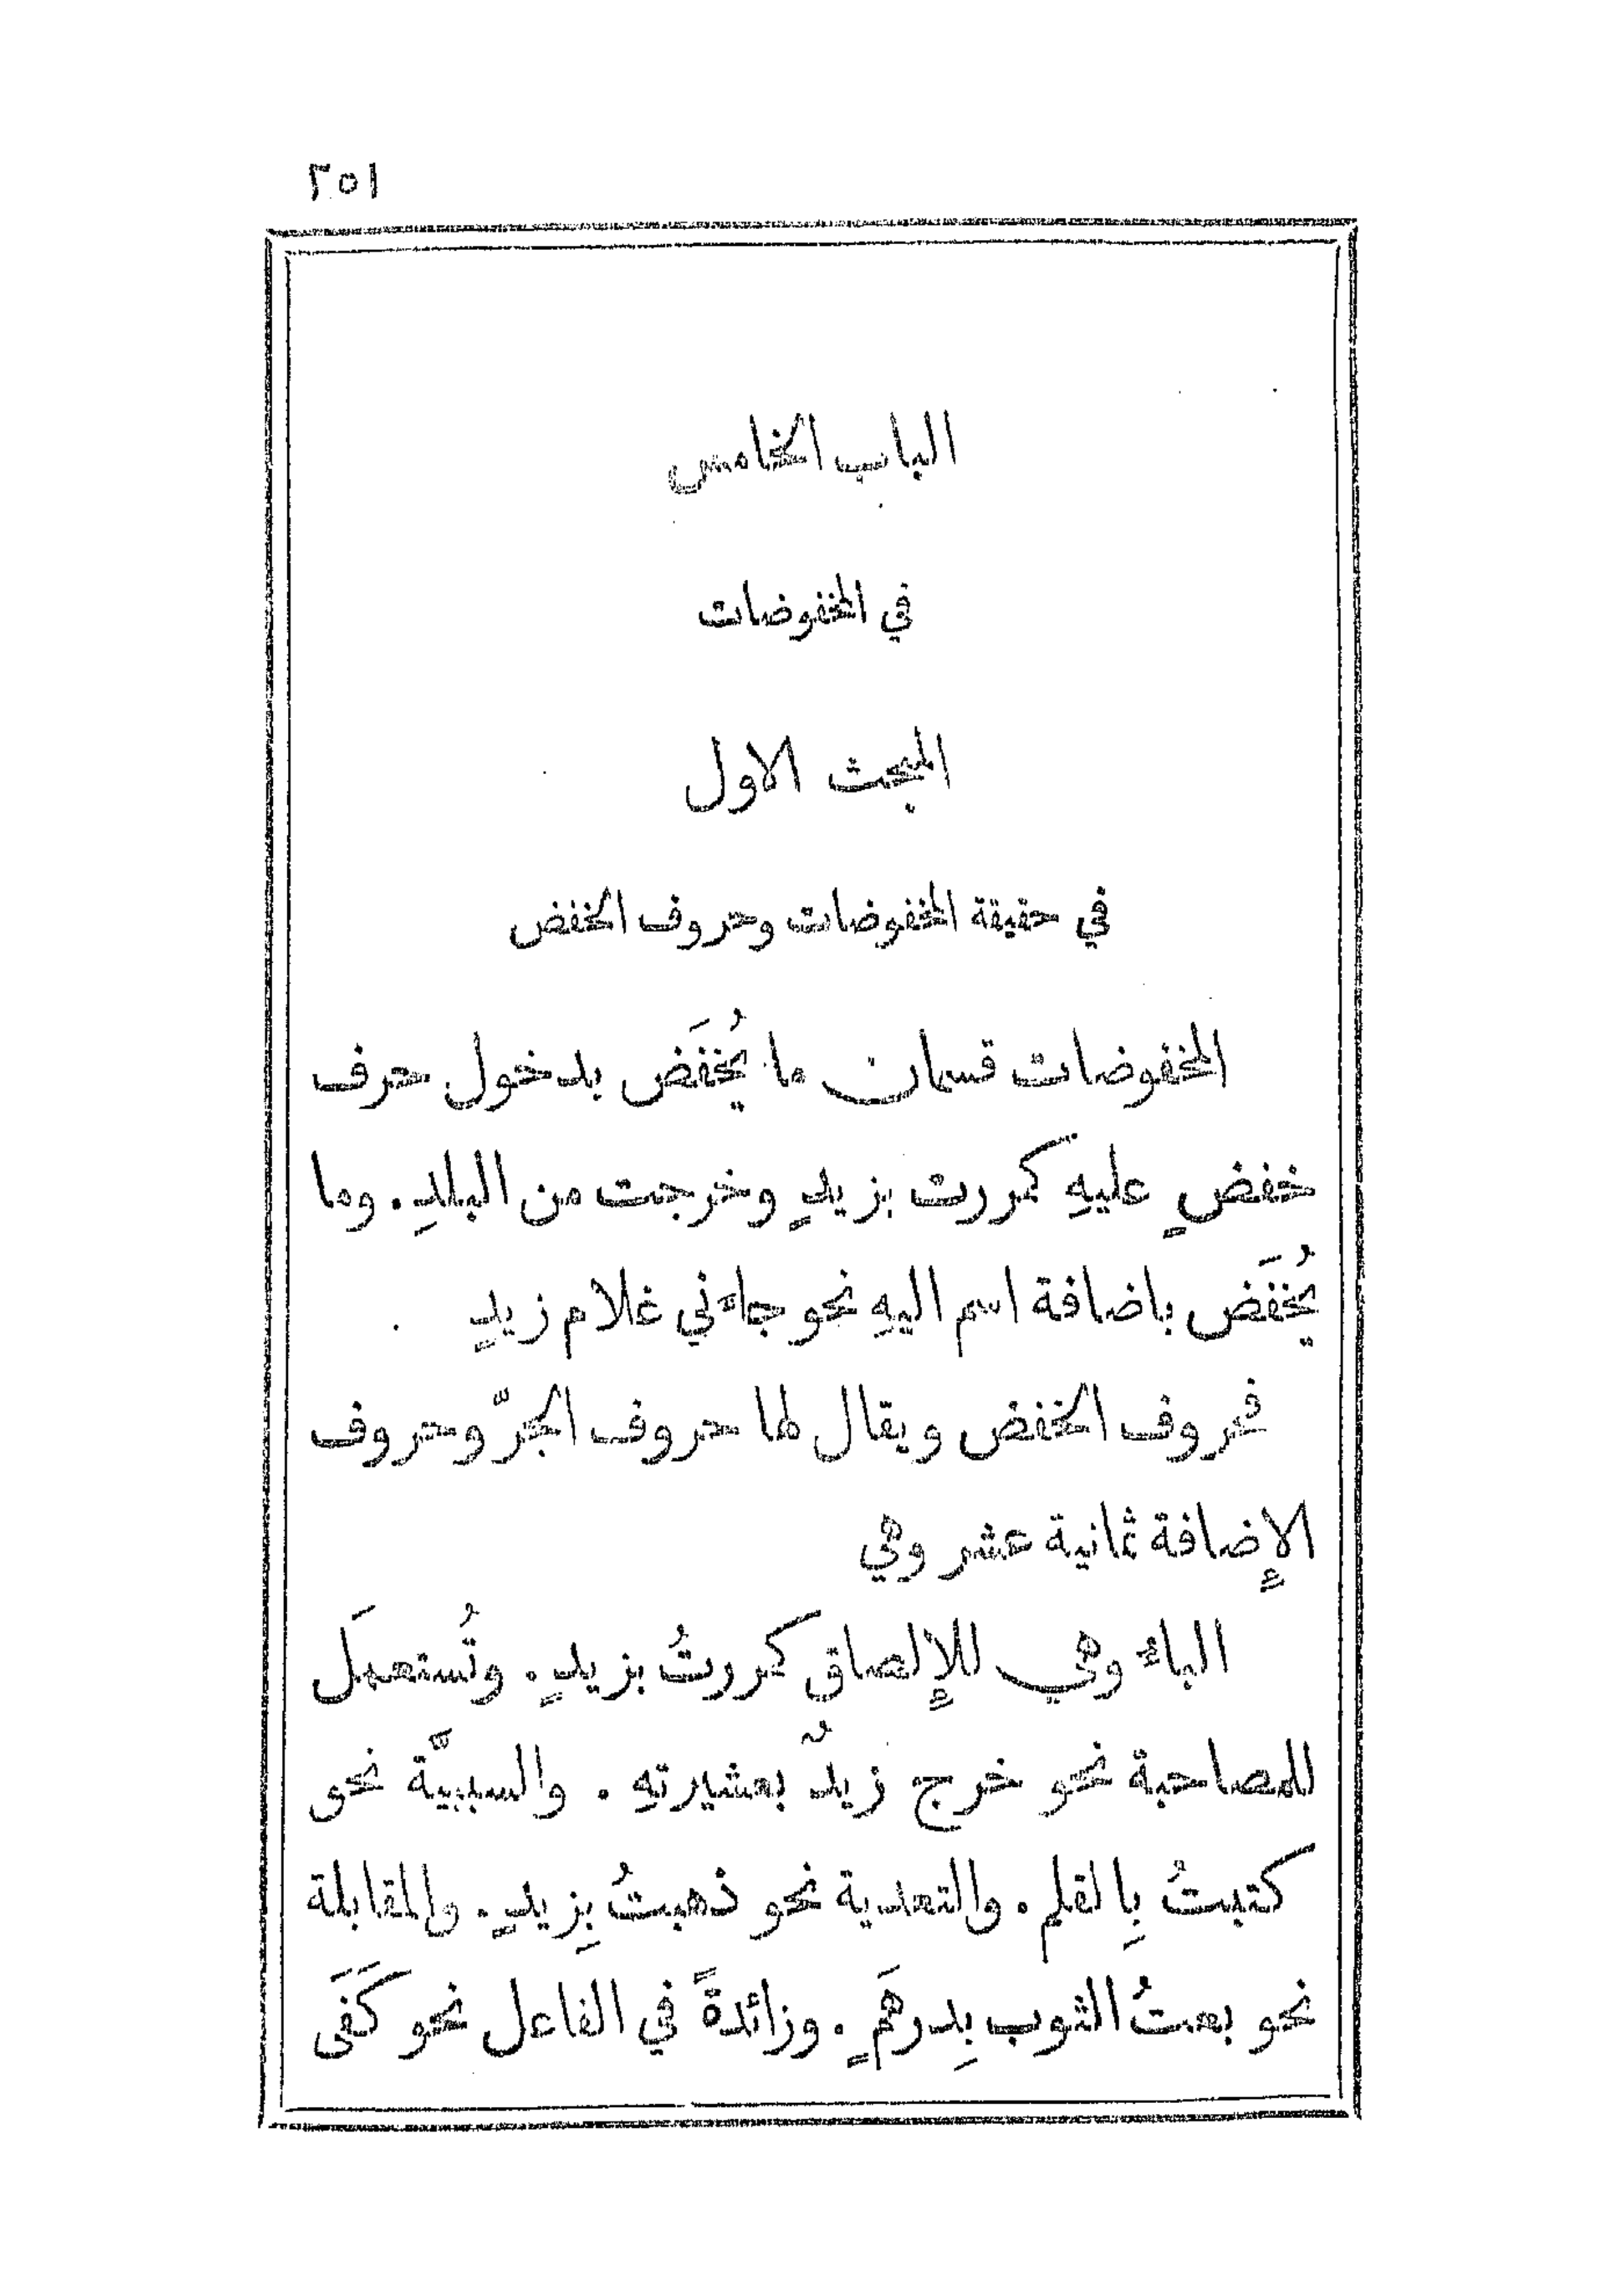 ٢٥١
الباب الخامس
في المخفوضات
المبحث الاول
في حقيقة المخفوضات وحروف الخفض
المخفوضات قسمان ما يُخفَض بدخول حرف
خفضٍ عليهِ كمررت بزيدٍ وخرجت من البلدِ. وما
يُخفَض باضافة اسم اليهِ نحو جاءني غلام زيدٍ
فحروف الخفض ويقال لها حروف الجرّ وحروف
الإضافة ثمانية عشر وهي
الباء وهي للإلصاق كمررتُ بزيدٍ. وتُستعمَل
للمصاحبة نحو خرج زيدٌ بعشيرتهِ. والسببيَّة نحو
كتبتُ بِالقلم. والتعدية نحو ذهبتُ بِزيدٍ. والمقابلة
نحو بعتُ الثوب بِدرهَمٍ. وزائدةً في الفاعل نحو كَفَى